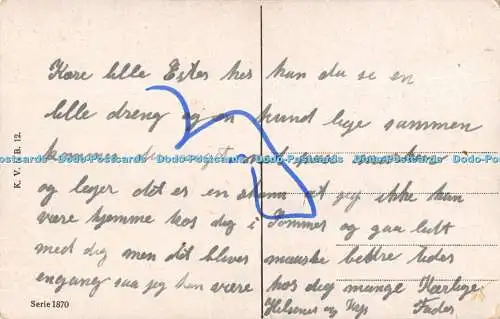 Kære lille Ester her kan du se en
lille dreng og en hund lege sammen
komme du
Dodo-Postcards Dodo-Postcards Dodo-Postcards Dodo-Postcards Dodo-Postcards
og leger det er en skam at jeg ikke kan
være hjemme hos dig i Sommer og gaa lidt
med dig men dit bliver maaske bedre tider
engang saa jeg kan være hos dig mange Kærlige
Hilsener og Kys Fader
K. V. B. 12.
Serie 1870